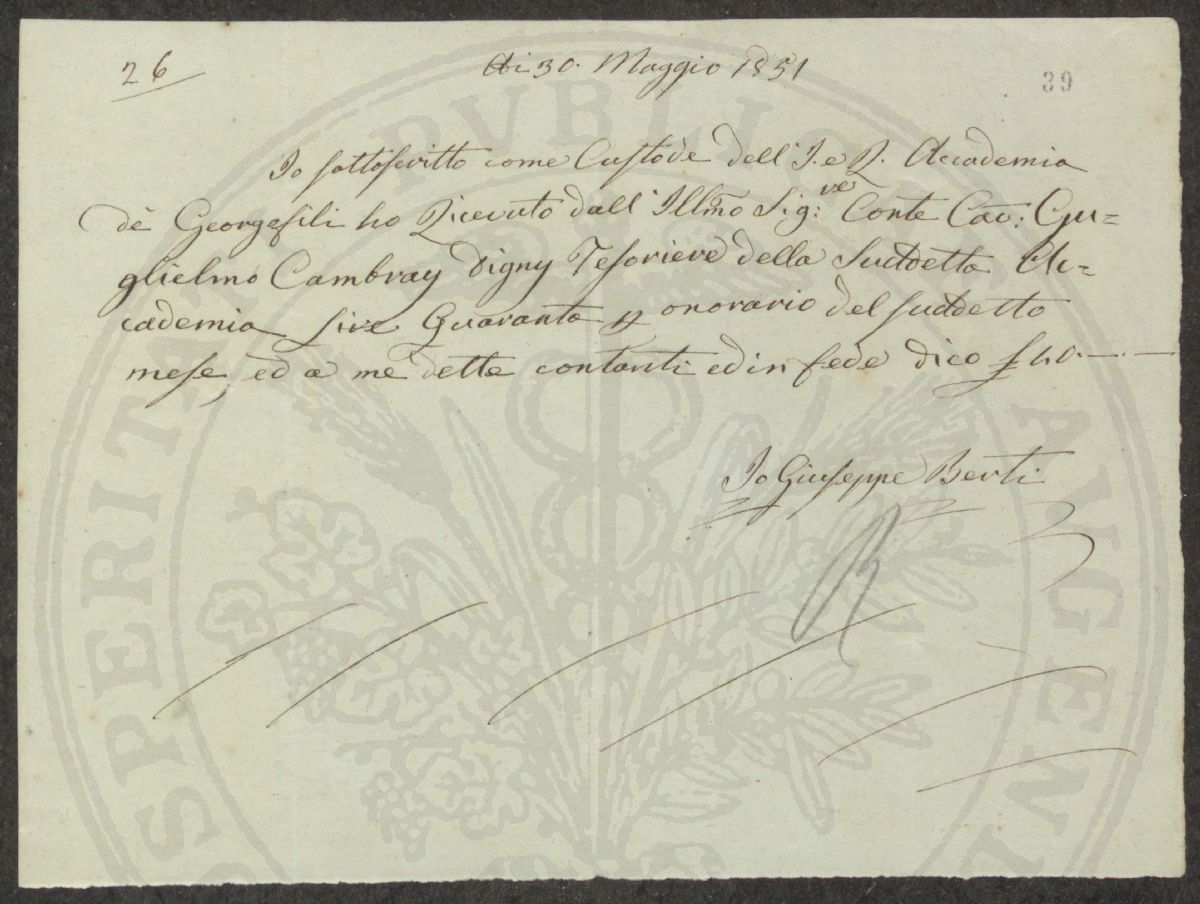 26
Ai 30. Maggio 1851
39
Io sottoscritto come Custode dell' I. e R. Accademia
dè Georgofili ho Ricevuto dall' Illmo Sig:re Conte Cav: Gu=
glielmo Cambray Digny Tesoriere della Suddetta Ac=
cademia Lire Quaranta p onorario del suddetto
mese, ed a me dette contanti ed in fede dico £ 40.—.—
Io Giuseppe Berti
PROSPERITATI PUBLICAE AUGEN